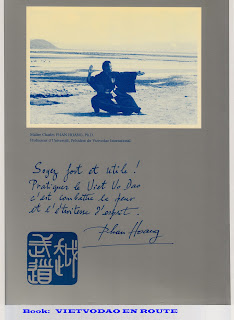 Maître Charles PHAN HOANG, Ph.D.
Professeur à l'Université, Président de Vietvodao International
Soyez fort et utile !
Pratiquer le Viet Vo Dao
c'est combattre la peur
et l'étroitesse d'esprit.
Phan Hoang
越武道
Book: VIETVODAO EN ROUTE